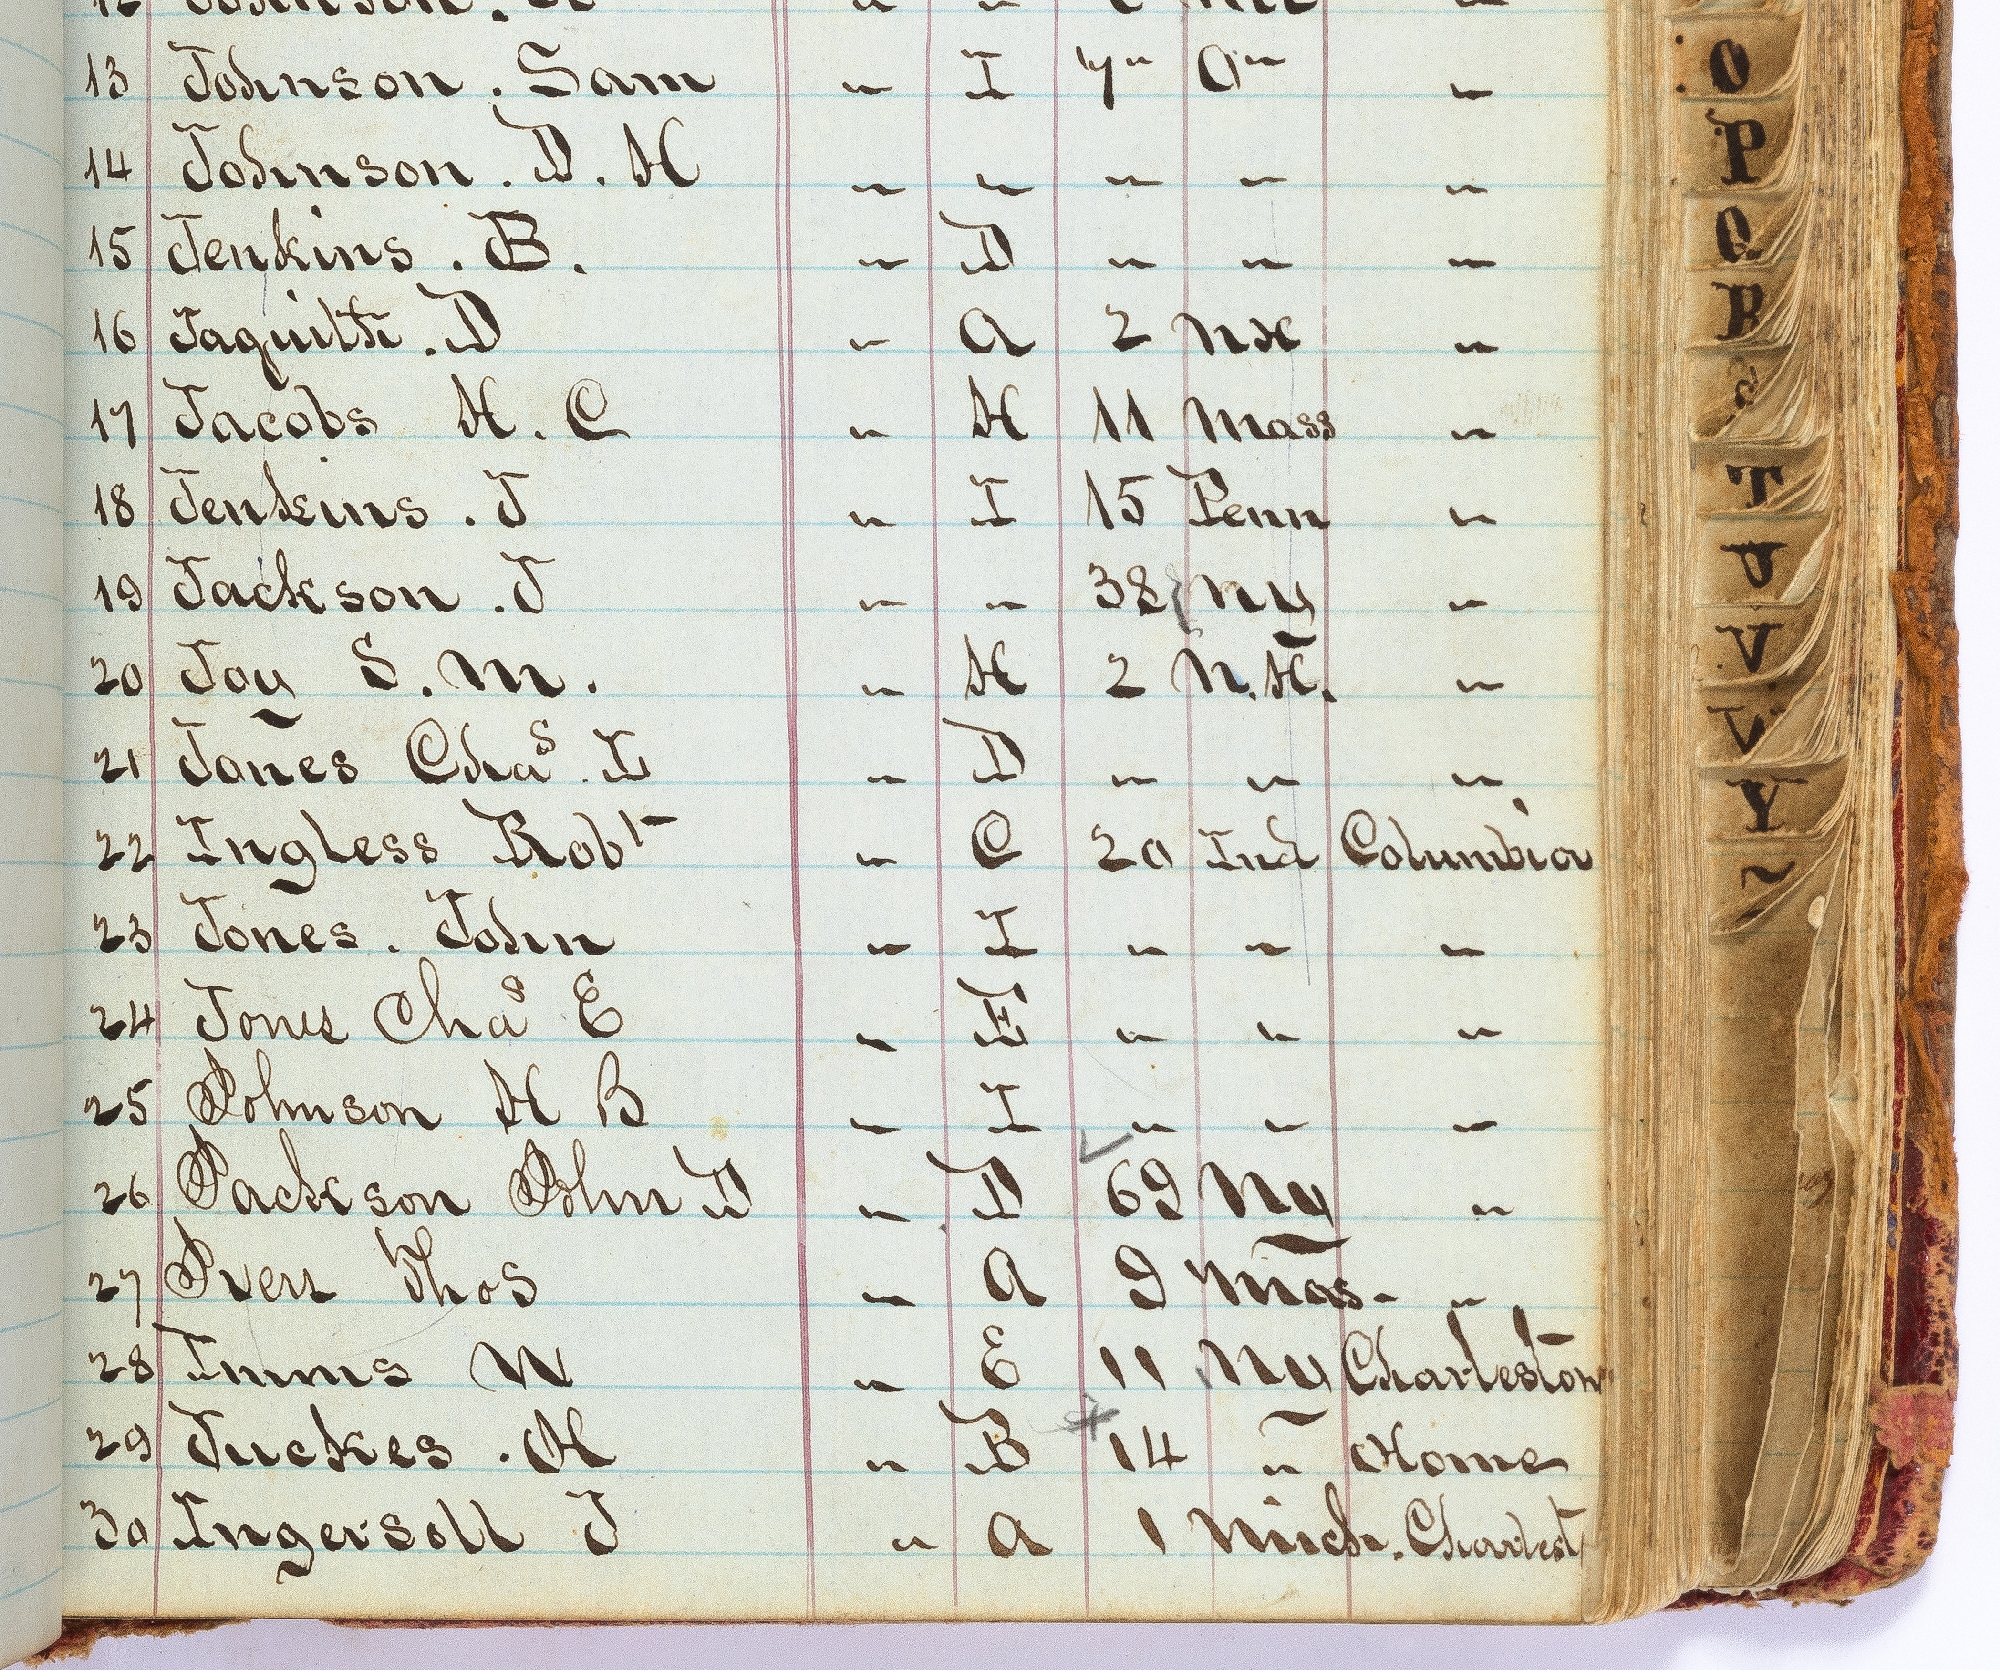 13 Johnson . Sam " I 7" O" "
14 Johnson . D. H " " " " "
15 Jenkins . B. " D " " "
16 Jaquith . D " A 2 NH "
17 Jacobs H. C " H 11 Mass "
18 Jenkins . J " I 15 Penn "
19 Jackson . J " " 38 Ny "
20 Joy S. M. " H 2 N.H. "
21 Jones Chas . L " D " " "
22 Ingless Robt " C 20 Ind Columbia
23 Jones . John " I " " "
24 Jones Chas E " E " " "
25 Johnson H B " I " " "
26 Jackson John D " D 69 Ny "
27 Thos " A 9 Mas- "
28 Imms W " E 11 Ny Charleston
29 Juckes . H " B 14 " Home
30 Ingersoll J " A 1 Mich. Charlest
O
P
Q
R
S
T
U
V
W
Y